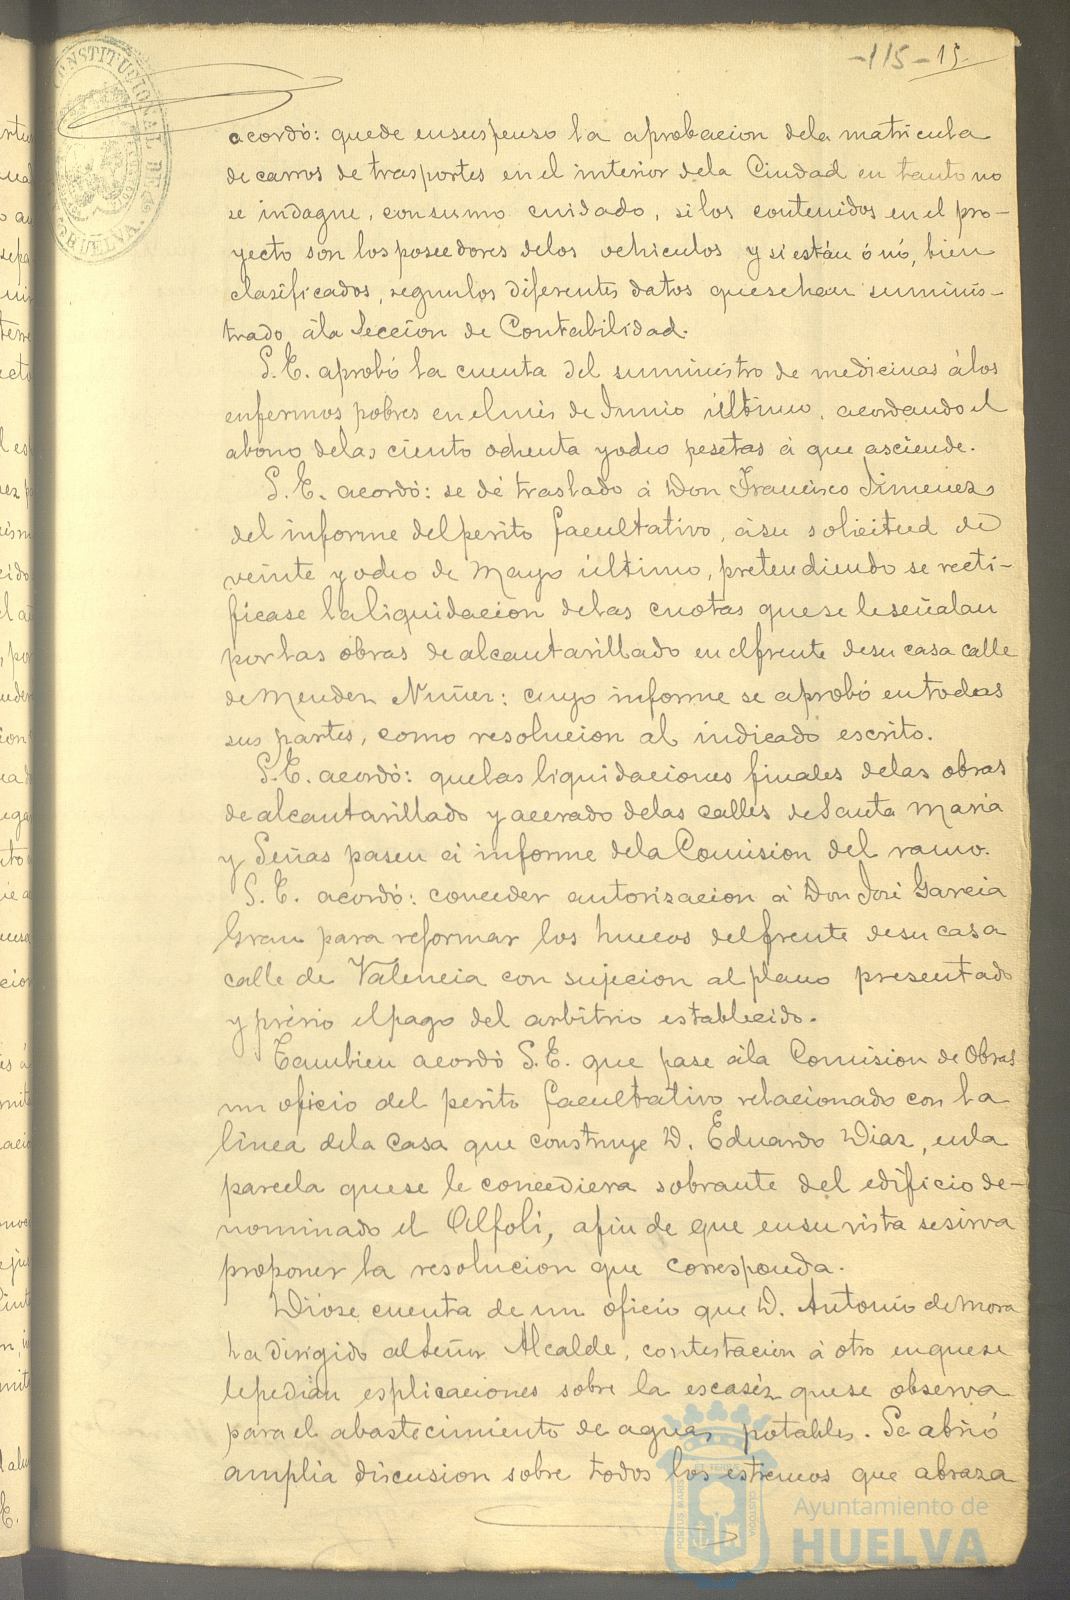 -115- 15
CONSTITUCIONAL DE
HUELVA
acordó: quede en suspenso la aprobacion dela matricula
de carros de trasportes en el interior dela Ciudad en tanto no
se indague, con sumo cuidado, si los contenidos en el pro-
yecto son los poseedores delos vehiculos y si están ó nó, bien
clasificados, segun los diferentes datos que se han suminis-
trado á la Seccion de Contabilidad.
S.E. aprobó la cuenta del suministro de medicinas á los
enfermos pobres en el mes de Junio último, acordando el
abono delas ciento ochenta y ocho pesetas á que asciende.
S.E. acordó: se dé traslado á Don Francisco Jimenez
del informe del perito facultativo, á su solicitud de
veinte y ocho de Mayo último, pretendiendo se recti-
ficase la liquidacion delas cuotas que se le señalan
por las obras de alcantarillado en el frente de su casa calle
de Mendez Nuñez: cuyo informe se aprobó en todas
sus partes, como resolucion al indicado escrito.
S.E. acordó: que las liquidaciones finales delas obras
de alcantarillado y acerado delas calles de Santa Maria
y Señas pasen á informe dela Comision del ramo.
S.E. acordó: conceder autorizacion á Don José Garcia
Grau para reformar los huecos del frente de su casa
calle de Valencia con sujecion al plano presentado
y prévio el pago del arbitrio establecido.
Tambien acordó S.E. que pase á la Comision de Obras
un oficio del perito facultativo relacionado con la
línea dela Casa que construye D. Eduardo Diaz, en la
parcela que se le concediera sobrante del edificio de-
nominado el Alfolí, afin de que en su vista se sirva
proponer la resolucion que corresponda.
Dióse cuenta de un oficio que D. Antonio de Mora
ha dirigido al Señor Alcalde, contestacion á otro en que se
le pedian esplicaciones sobre la escaséz que se observa
para el abastecimiento de aguas potables. Se abrió
amplia discusion sobre todos los estremos que abraza
PORTUS MARIS ET TERRAE CUSTODIA
Ayuntamiento de
HUELVA